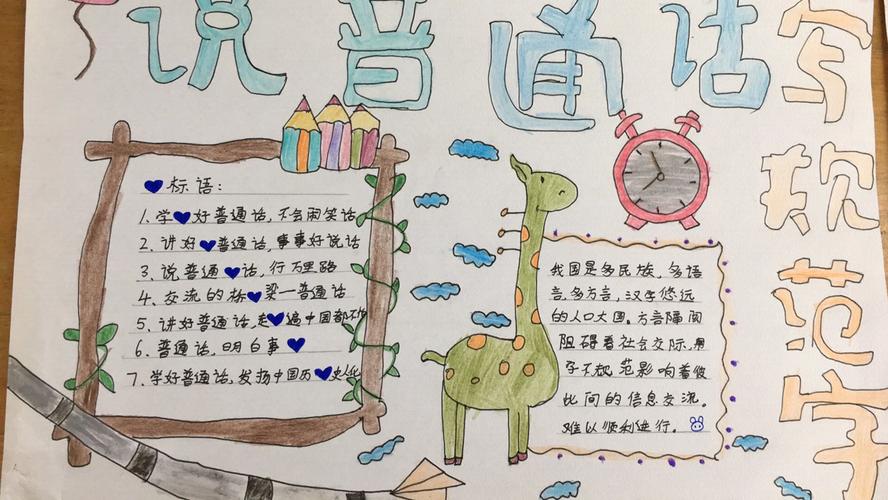 说普通话
写规范字
标语：
1、学好普通话，不会闹笑话
2、讲好普通话，事事好说话
3、说普通话，行万里路
4、交流的桥梁—普通话
5、讲好普通话，走遍中国都不怕
6、普通话，明白事
7、学好普通话，发扬中国历史文化
我国是多民族，多语
言，多方言，汉字悠远
的人口大国。方言隔阂
阻碍着社会交际，用
字不规范影响着彼
此间的信息交流。
难以顺利进行。